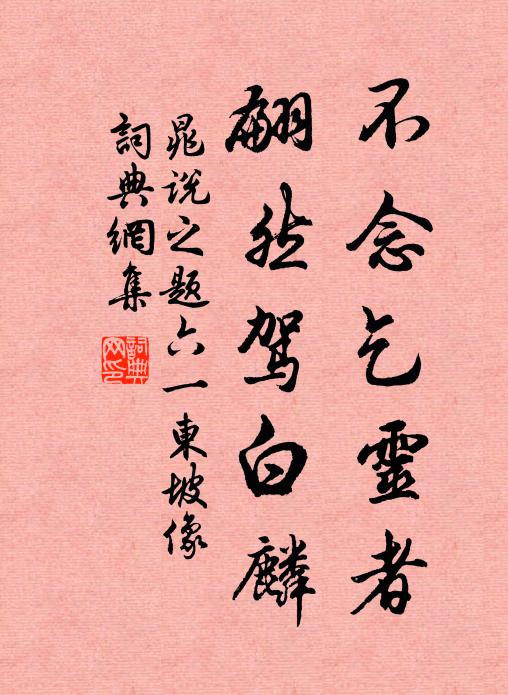 不念乞靈者
翩然駕白麟
晁說之題六一東坡像
詞典網集
詞典
網印